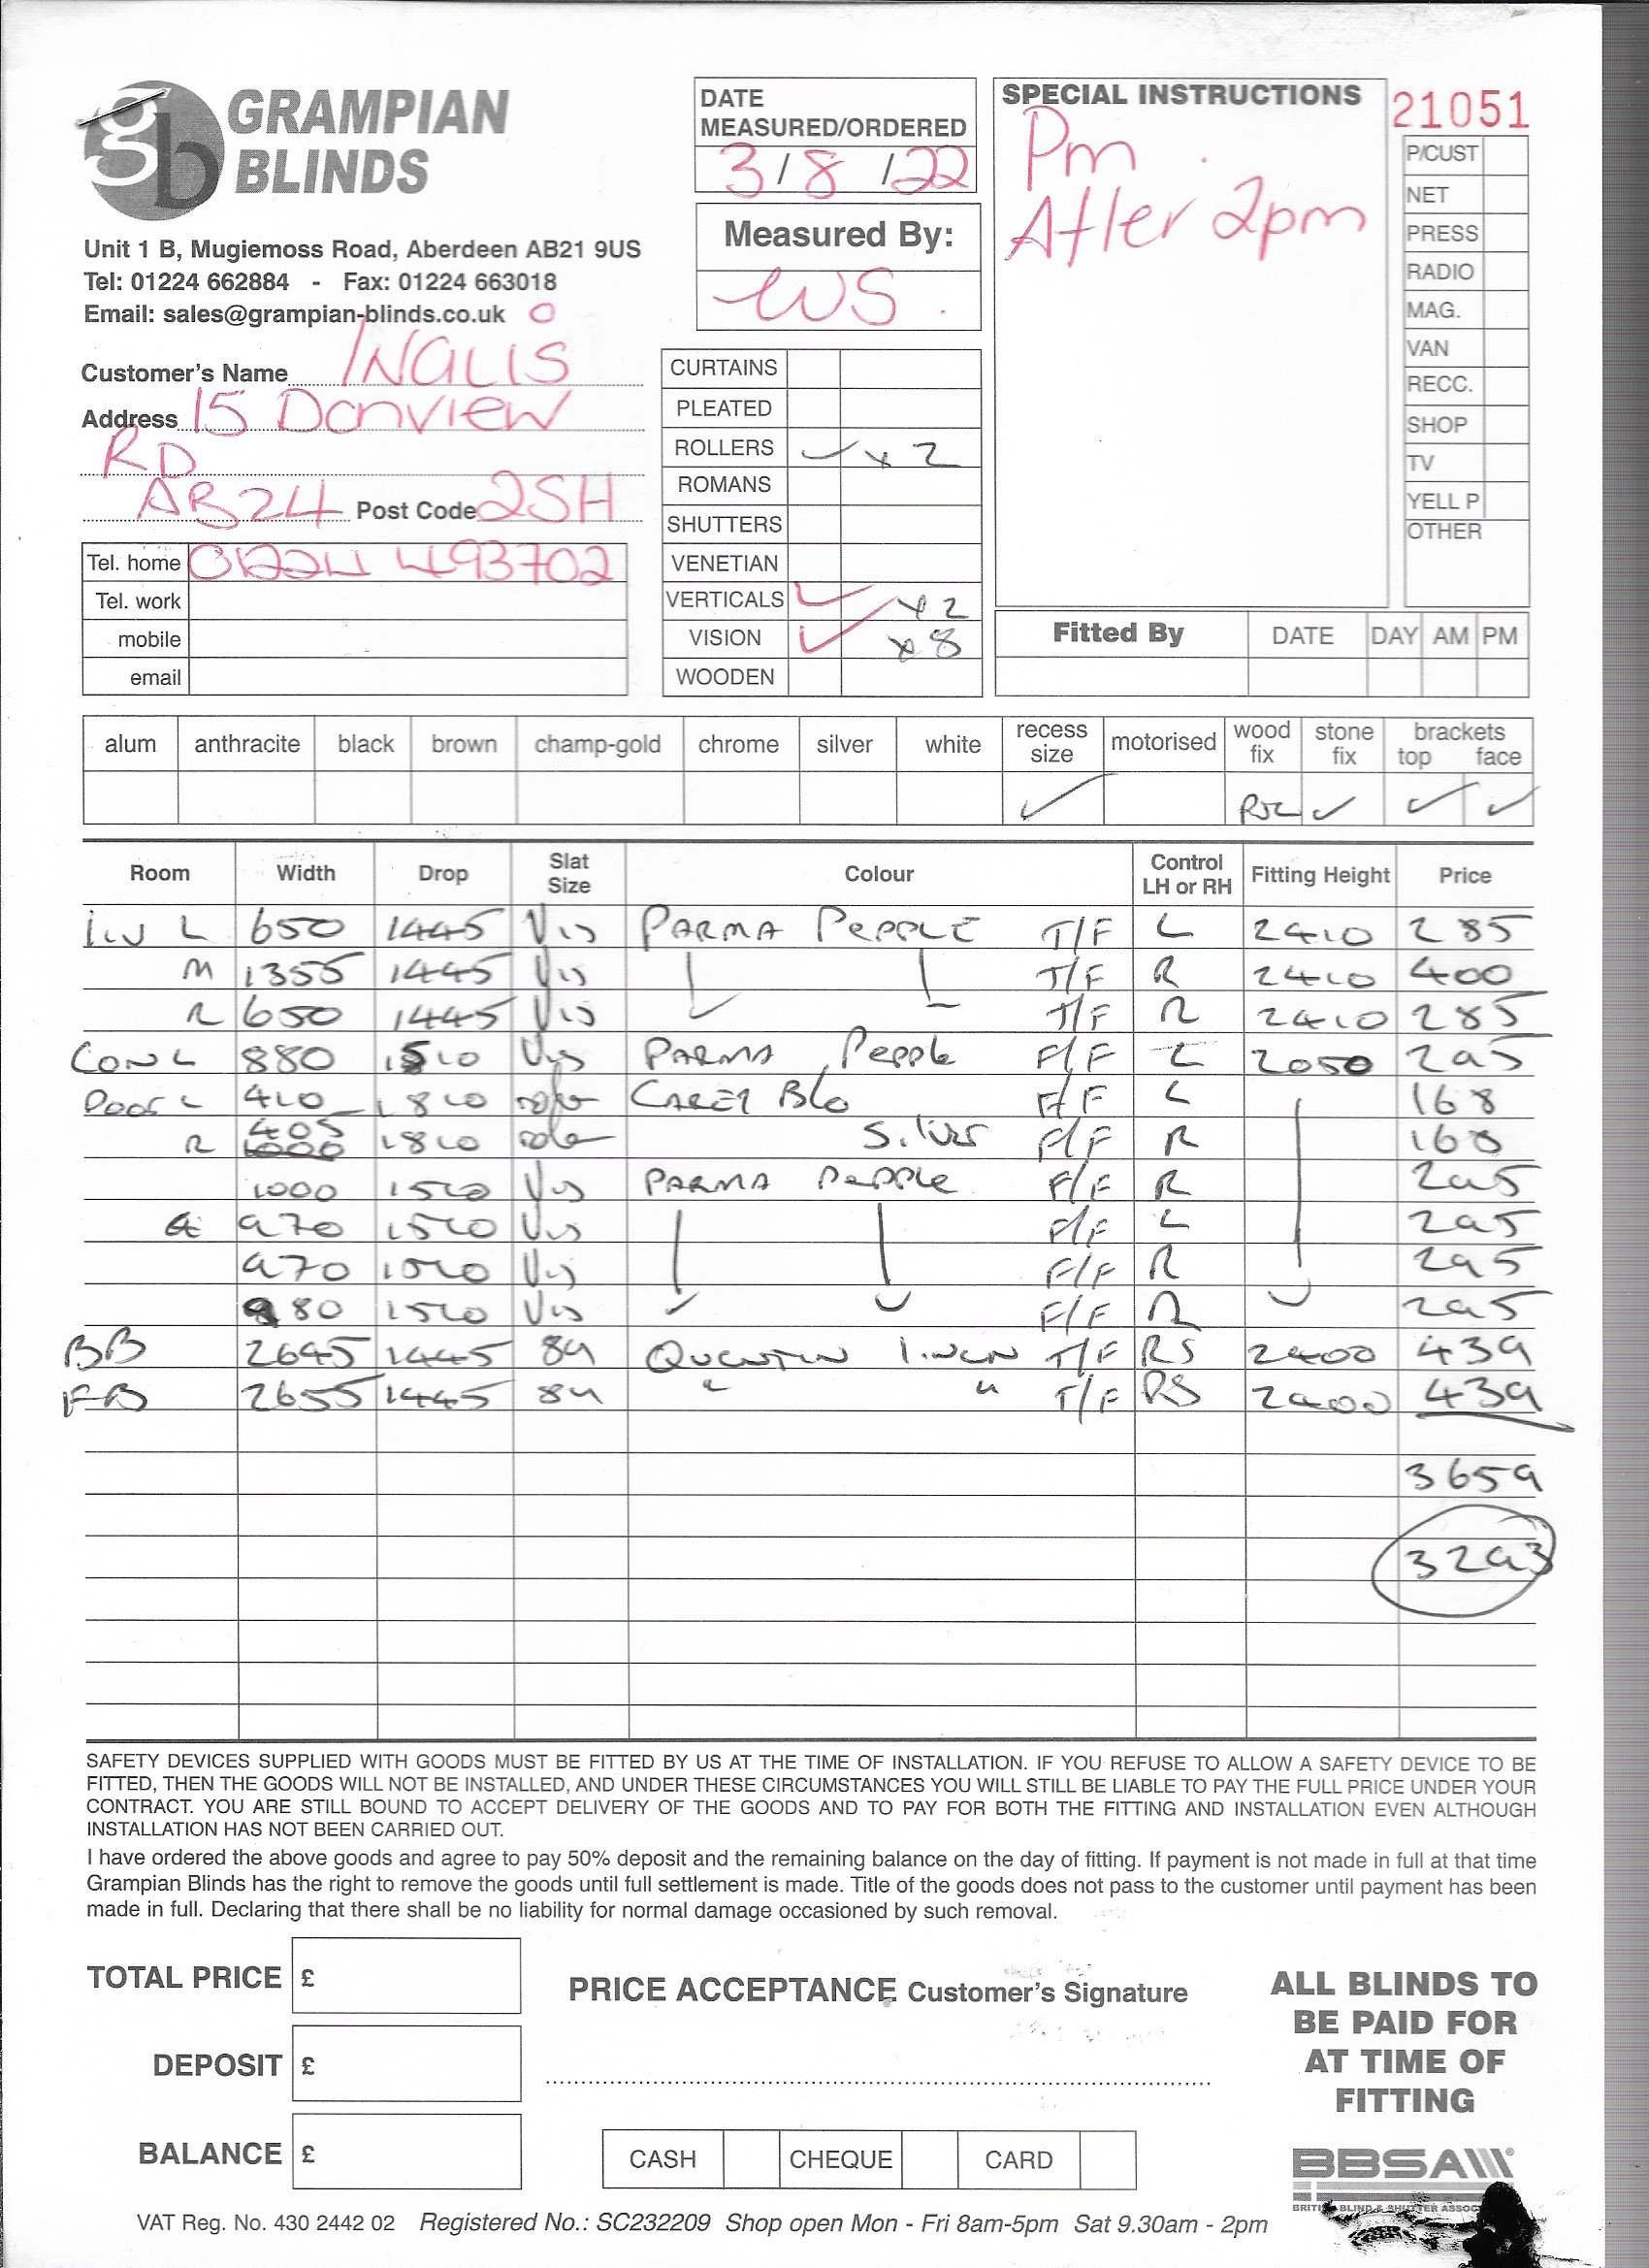 GRAMPIAN
BLINDS
Unit 1 B, Mugiemoss Road, Aberdeen AB21 9US
Tel: 01224 662884 - Fax: 01224 663018
Email: sales@grampian-blinds.co.uk
Customer's Name INGLIS
Address 15 Donview
RD
AB24 Post Code 2SH
Tel. home 01224 493702
Tel. work
mobile
email
DATE
MEASURED/ORDERED
3/8/22
Measured By:
WS
CURTAINS
PLEATED
ROLLERS ✓ x 2
ROMANS
SHUTTERS
VENETIAN
VERTICALS ✓ x 2
VISION ✓ x 8
WOODEN
SPECIAL INSTRUCTIONS
Pm
After 2pm
21051
P/CUST
NET
PRESS
RADIO
MAG.
VAN
RECC.
SHOP
TV
YELL P
OTHER
Fitted By DATE DAY AM PM
alum anthracite black brown champ-gold chrome silver white recess size motorised wood fix stone fix brackets top face
✓ ✓ ✓ ✓
Room Width Drop Slat Size Colour Control LH or RH Fitting Height Price
Liv L 650 1445 Vis PARMA PEPPLE T/F L 2410 285
M 1355 1445 Vis T/F R 2410 400
R 650 1445 Vis T/F R 2410 285
CON L 880 1510 Vis PARMA Pepple F/F L 2050 295
Door L 410 1810 roller CAREY Blo F/F L 168
R 405 1810 roller Silver F/F R 168
1000 1510 Vis PARMA Pepple F/F R 295
970 1510 Vis F/F L 295
970 1510 Vis F/F R 295
980 1510 Vis F/F R 295
BB 2645 1445 89 Quentin Linen T/F RS 2400 439
FB 2655 1445 89 " " T/F RS 2400 439
3659
3293
SAFETY DEVICES SUPPLIED WITH GOODS MUST BE FITTED BY US AT THE TIME OF INSTALLATION. IF YOU REFUSE TO ALLOW A SAFETY DEVICE TO BE
FITTED, THEN THE GOODS WILL NOT BE INSTALLED, AND UNDER THESE CIRCUMSTANCES YOU WILL STILL BE LIABLE TO PAY THE FULL PRICE UNDER YOUR
CONTRACT. YOU ARE STILL BOUND TO ACCEPT DELIVERY OF THE GOODS AND TO PAY FOR BOTH THE FITTING AND INSTALLATION EVEN ALTHOUGH
INSTALLATION HAS NOT BEEN CARRIED OUT.
I have ordered the above goods and agree to pay 50% deposit and the remaining balance on the day of fitting. If payment is not made in full at that time
Grampian Blinds has the right to remove the goods until full settlement is made. Title of the goods does not pass to the customer until payment has been
made in full. Declaring that there shall be no liability for normal damage occasioned by such removal.
TOTAL PRICE £
DEPOSIT £
BALANCE £
PRICE ACCEPTANCE Customer's Signature
CASH CHEQUE CARD
ALL BLINDS TO
BE PAID FOR
AT TIME OF
FITTING
BBSA
VAT Reg. No. 430 2442 02 Registered No.: SC232209 Shop open Mon - Fri 8am-5pm Sat 9.30am - 2pm